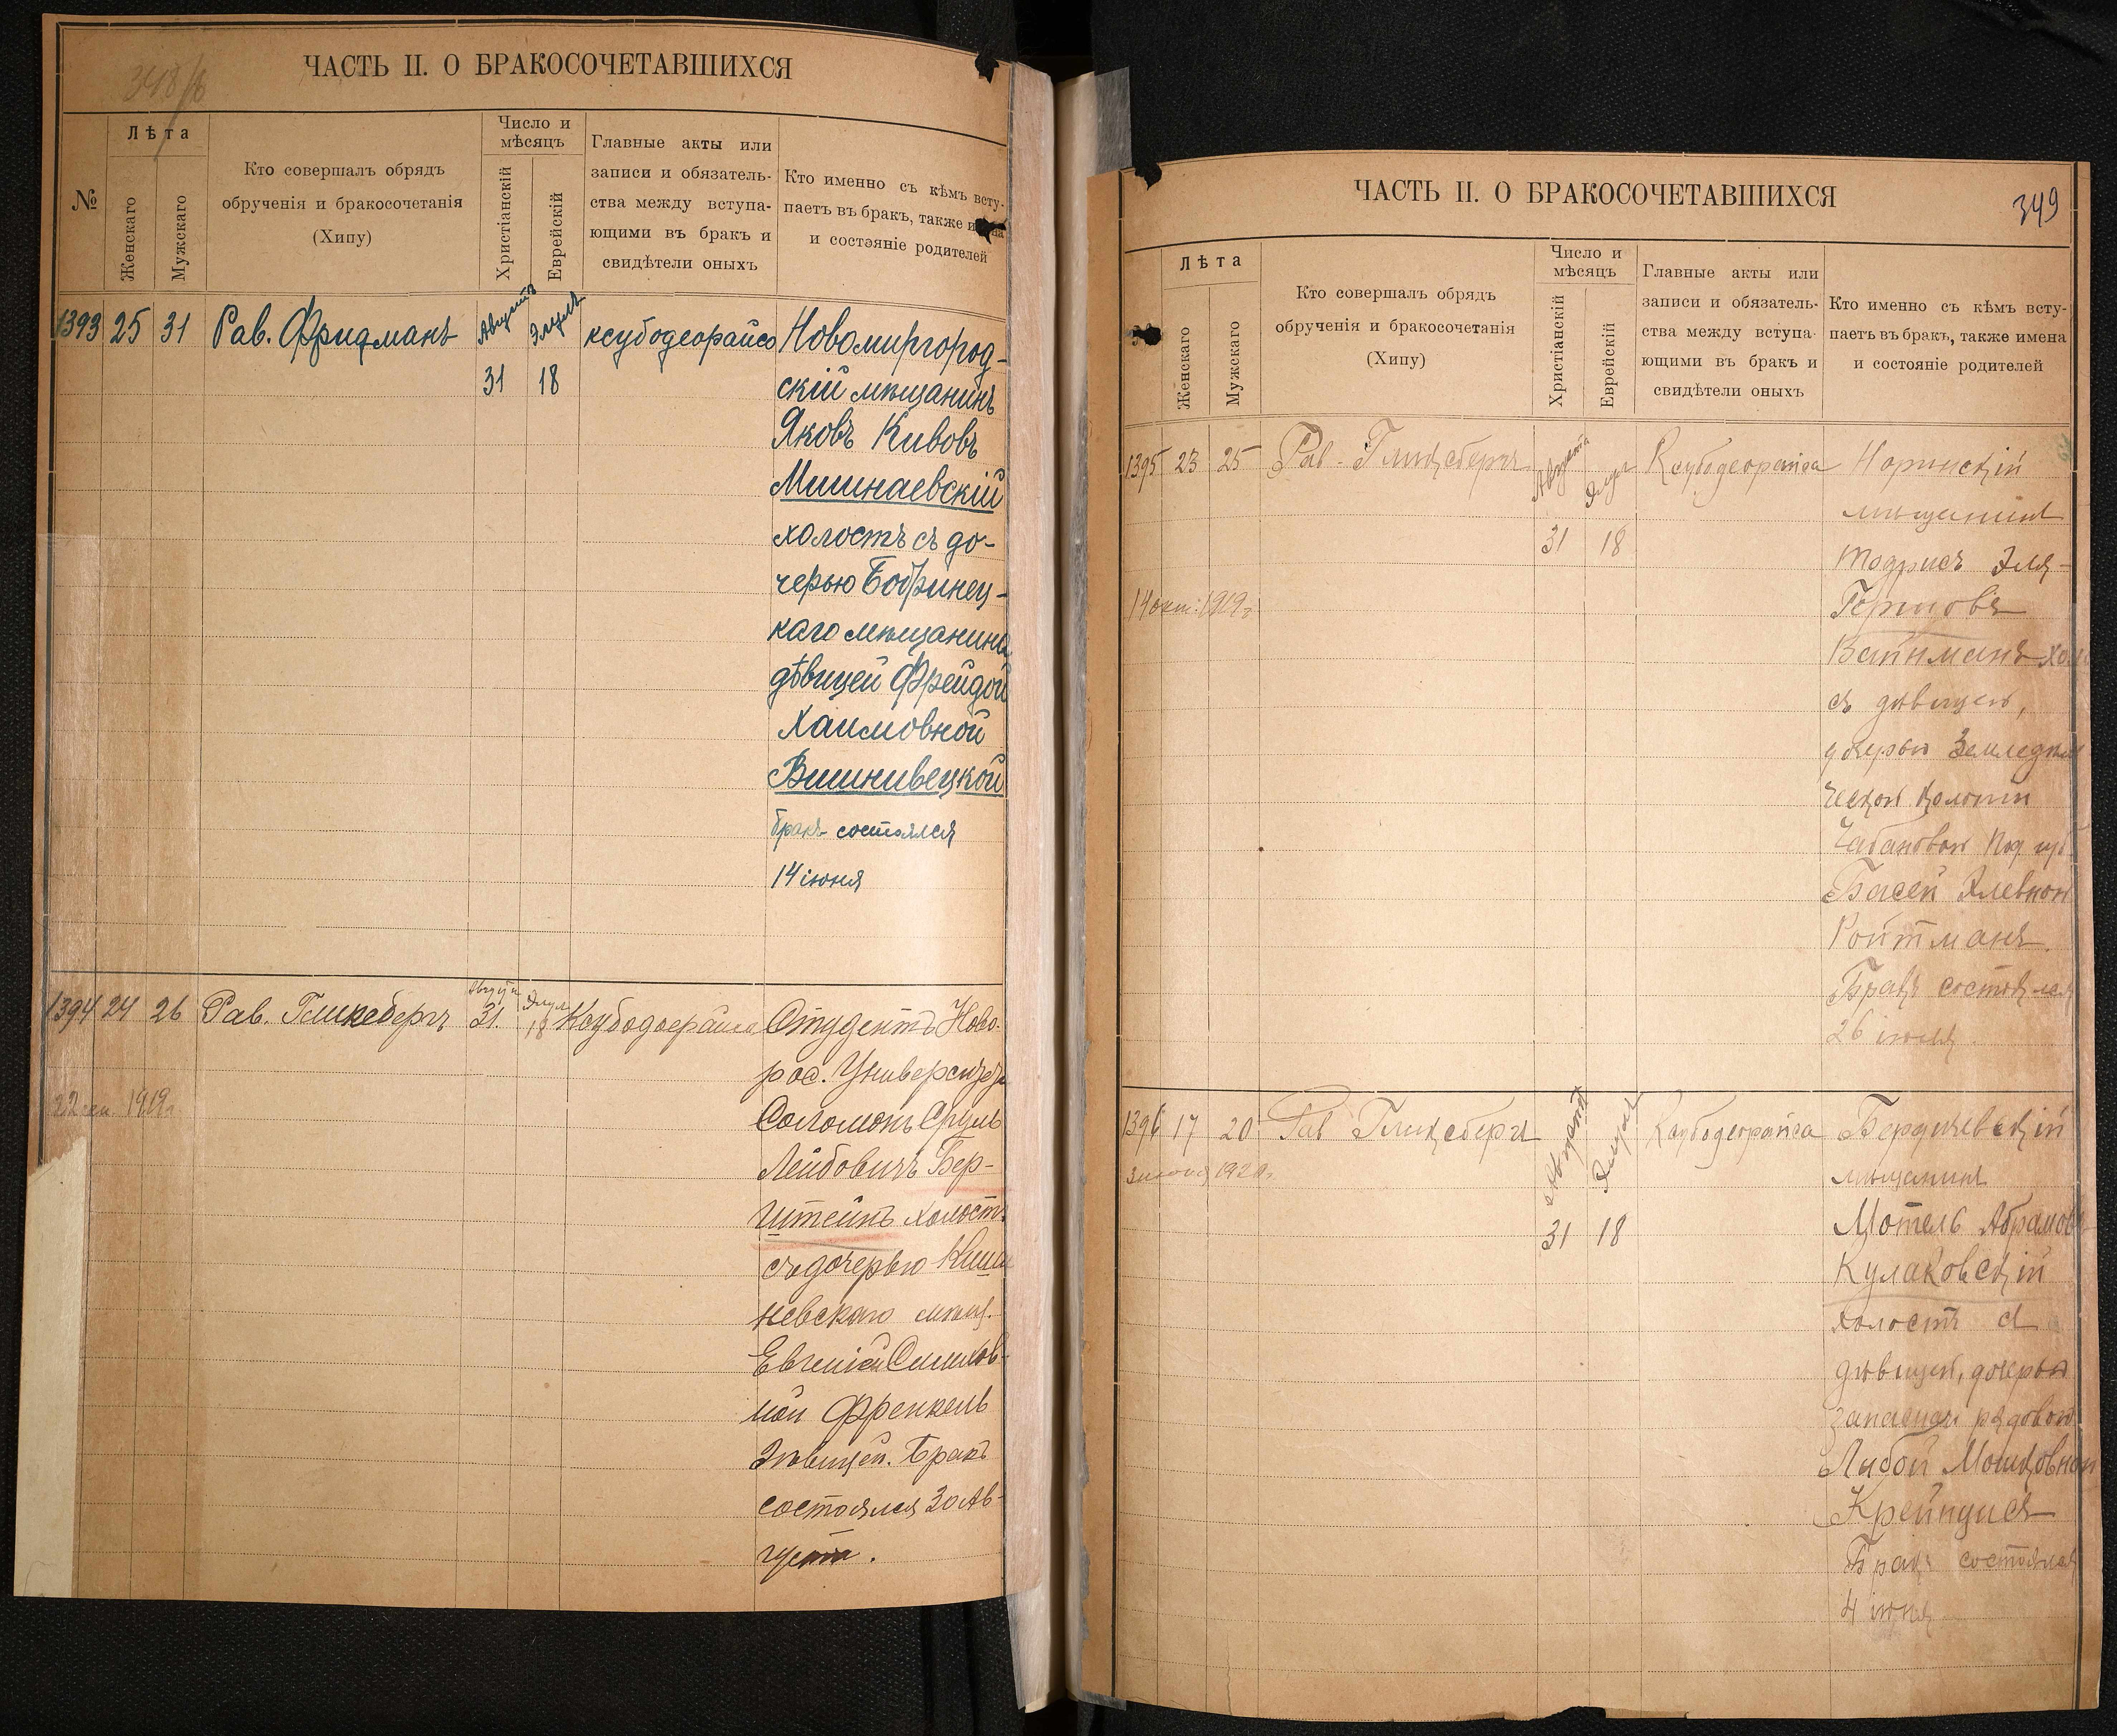 348/б
ЧАСТЬ II. О БРАКОСОЧЕТАВШИХСЯ
№
Лѣта
Женскаго
Мужскаго
Кто совершалъ обрядъ
обрученія и бракосочетанія
(Хипу)
Число и
мѣсяцъ
Христіанскій
Еврейскій
Главные акты или
записи и обязатель-
ства между вступа-
ющими въ бракъ и
свидѣтели оныхъ
Кто именно съ кѣмъ всту-
паетъ въ бракъ, также
и состояніе родителей
1393 25 31 Рав. Фридманъ Августъ Элулъ ксубодеорайсо Новомиргород-
31 18 скій мѣщанинъ
Яковъ Кивовъ
Мишнаевскій
холостъ съ до-
черью Бобринец-
каго мѣщанина
дѣвицей Фрейдой
Хаимовной
Вишнивецкой
бракъ состоялся
14 іюня
1394 24 26 Рав. Гликсбергъ Августа 31. Элула 18 Ксубодоерайса Студентъ Ново-
рос. Университета
22 1919г. Соломонъ Сруль
Лейбовичъ Бер-
штейнъ холостъ
съ дочерью Киши
невскаго мѣщ.
Евгеніей Симхов-
ной Френкель
дѣвицей. Бракъ
состоялся 30 Ав-
густа.
ЧАСТЬ II. О БРАКОСОЧЕТАВШИХСЯ
349
Лѣта
Женскаго
Мужскаго
Кто совершалъ обрядъ
обрученія и бракосочетанія
(Хипу)
Число и
мѣсяцъ
Христіанскій
Еврейскій
Главные акты или
записи и обязатель-
ства между вступа-
ющими въ бракъ и
свидѣтели оныхъ
Кто именно съ кѣмъ всту-
паетъ въ бракъ, также имена
и состояніе родителей
1395 23 25 Рав. Гликсбергъ Августа Элула Ксубодеорайса Норинскій
мѣщанинъ
31 18 Тодрисъ Эля-
14 окт. 1919г. Гершовъ
Вайнманъ хол
съ дѣвицей,
дочерью Земледѣль
ческой колоніи
Чабановой Под. губ.
Басей Элевной
Ройтманъ.
Бракъ состоялся
26 іюля.
1396 17 20 Рав Гликсбергъ Августа Элула Ксубодеорайса Бердичевскій
3 1920г. мѣщанинъ
31 18 Мотель Абрамовъ
Кулаковскій
холостъ съ
дѣвицей, дочерью
рядовой
Либой Мошковной
Крейндисъ
Бракъ состоялся
4 іюня